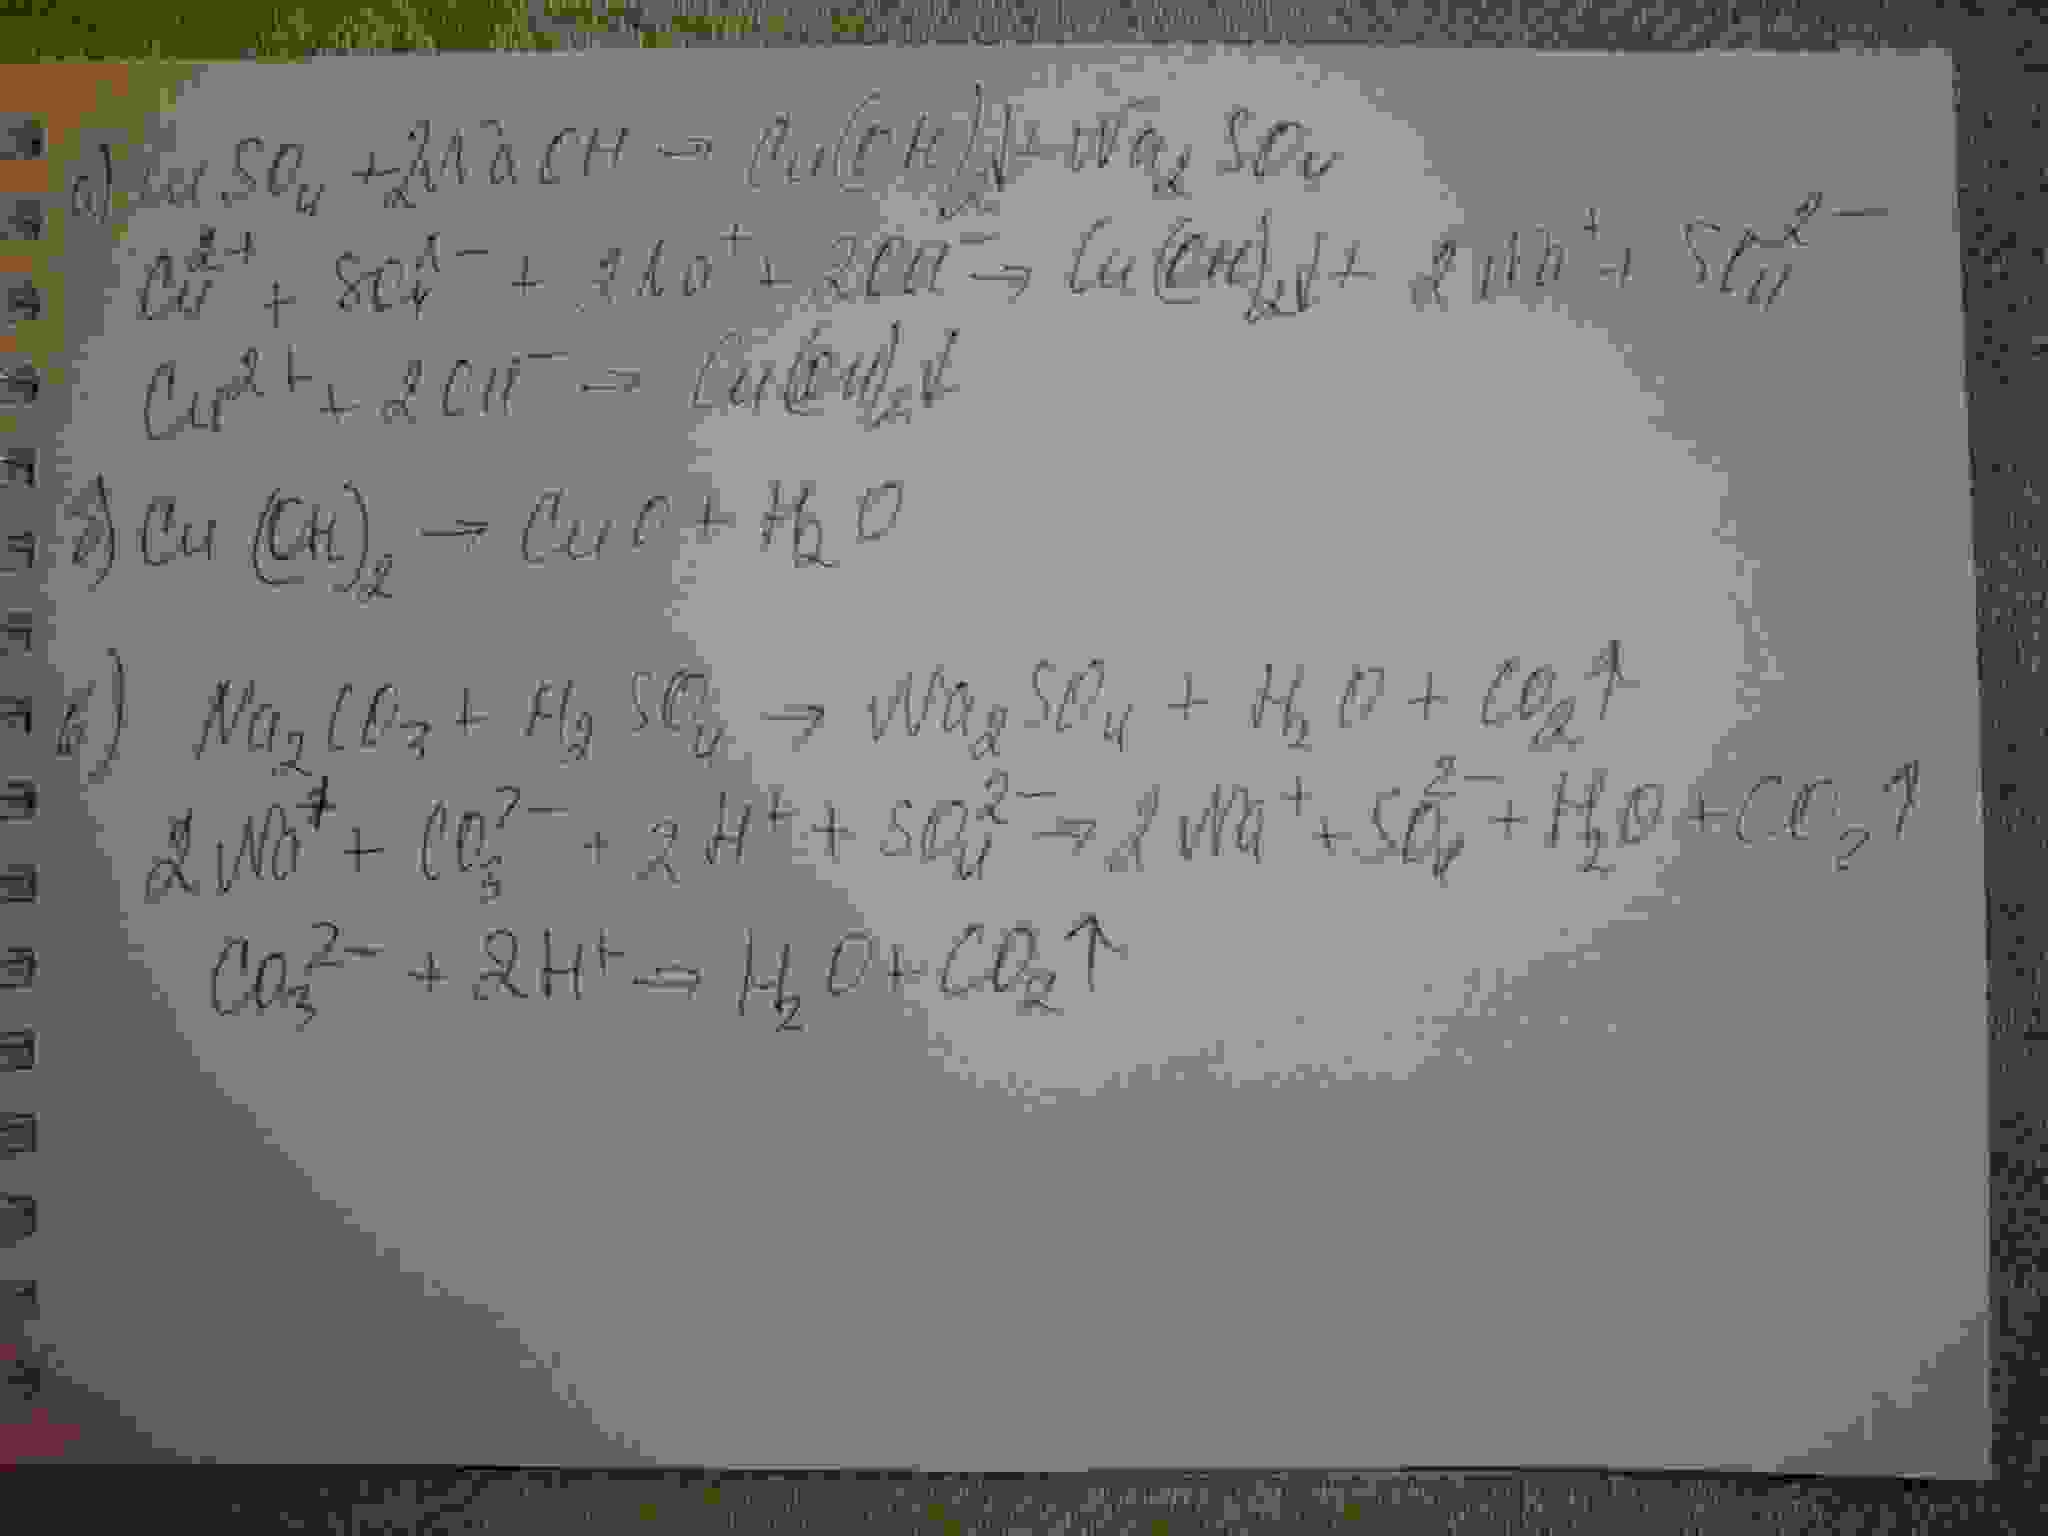 а) CuSO₄ + 2NaOH → Cu(OH)₂↓ + Na₂SO₄
Cu²⁺ + SO₄²⁻ + 2Na⁺ + 2OH⁻ → Cu(OH)₂↓ + 2Na⁺ + SO₄²⁻
Cu²⁺ + 2OH⁻ → Cu(OH)₂↓
б) Cu(OH)₂ → CuO + H₂O
в) Na₂CO₃ + H₂SO₄ → Na₂SO₄ + H₂O + CO₂↑
2Na⁺ + CO₃²⁻ + 2H⁺ + SO₄²⁻ → 2Na⁺ + SO₄²⁻ + H₂O + CO₂↑
CO₃²⁻ + 2H⁺ → H₂O + CO₂↑